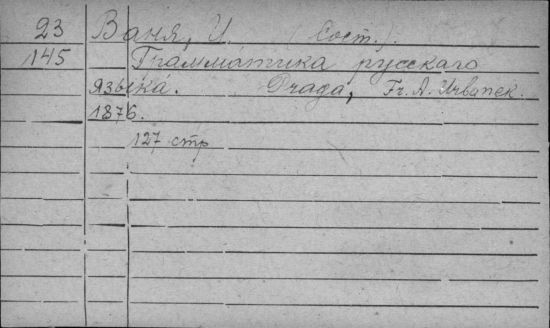 23 Ваня, И. (Сост.).
145 Грамматика русскаго
языка́. Прага, Fr. A. Urbanek.
1876.
127 стр